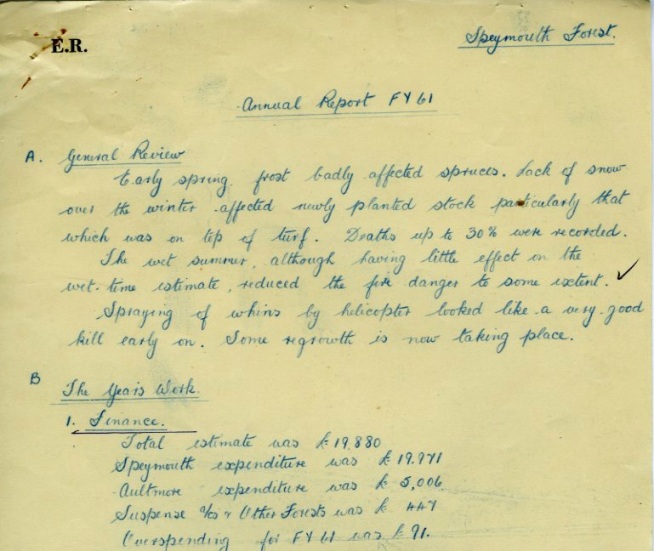 E.R.
Speymouth Forest.
Annual Report FY 61
A. General Review
Early spring frost badly affected spruces. Lack of snow
over the winter affected newly planted stock particularly that
which was on top of turf. Deaths up to 30% were recorded.
The wet summer, although having little effect on the
wet-time estimate, reduced the fire danger to some extent. ✓
Spraying of whins by helicopter looked like a very good
kill early on. Some regrowth is now taking place.
B
The Years Work.
1. Finance.
Total estimate was £19,880
Speymouth expenditure was £19.971
Aultmore expenditure was £5,006
Suspense a/cs & Other Forests was £447
Overspending for FY 61 was £91.